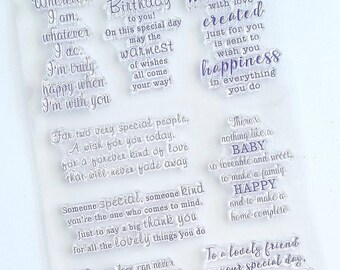 Wherever
I am,
whatever
I do,
I'm truly
happy when
I'm with you
Birthday
to you!
On this special day
may the
warmest
of wishes
all come
your way!
with love
created
just for you
is sent to
wish you
happiness
in everything
you do
For two very special people,
A wish for you today,
for a forever kind of love
that will never fade away
There's
nothing like a
BABY
so loveable and sweet,
to make a family
HAPPY
and to make a
home complete
Someone special, someone kind
you're the one who comes to mind.
Just to say a big thank you
for all the lovely things you do
can never
To a lovely friend
your special day,